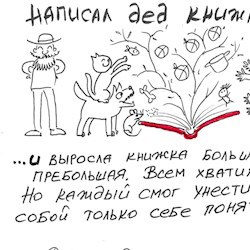 НАПИСАЛ ДЕД КНИЖК
...И ВЫРОСЛА КНИЖКА БОЛЬШ
ПРЕБОЛЬШАЯ. ВСЕМ ХВАТИ
НО КАЖДЫЙ СМОГ УНЕСТИ
СОБОЙ ТОЛЬКО СЕБЕ ПОНЯ